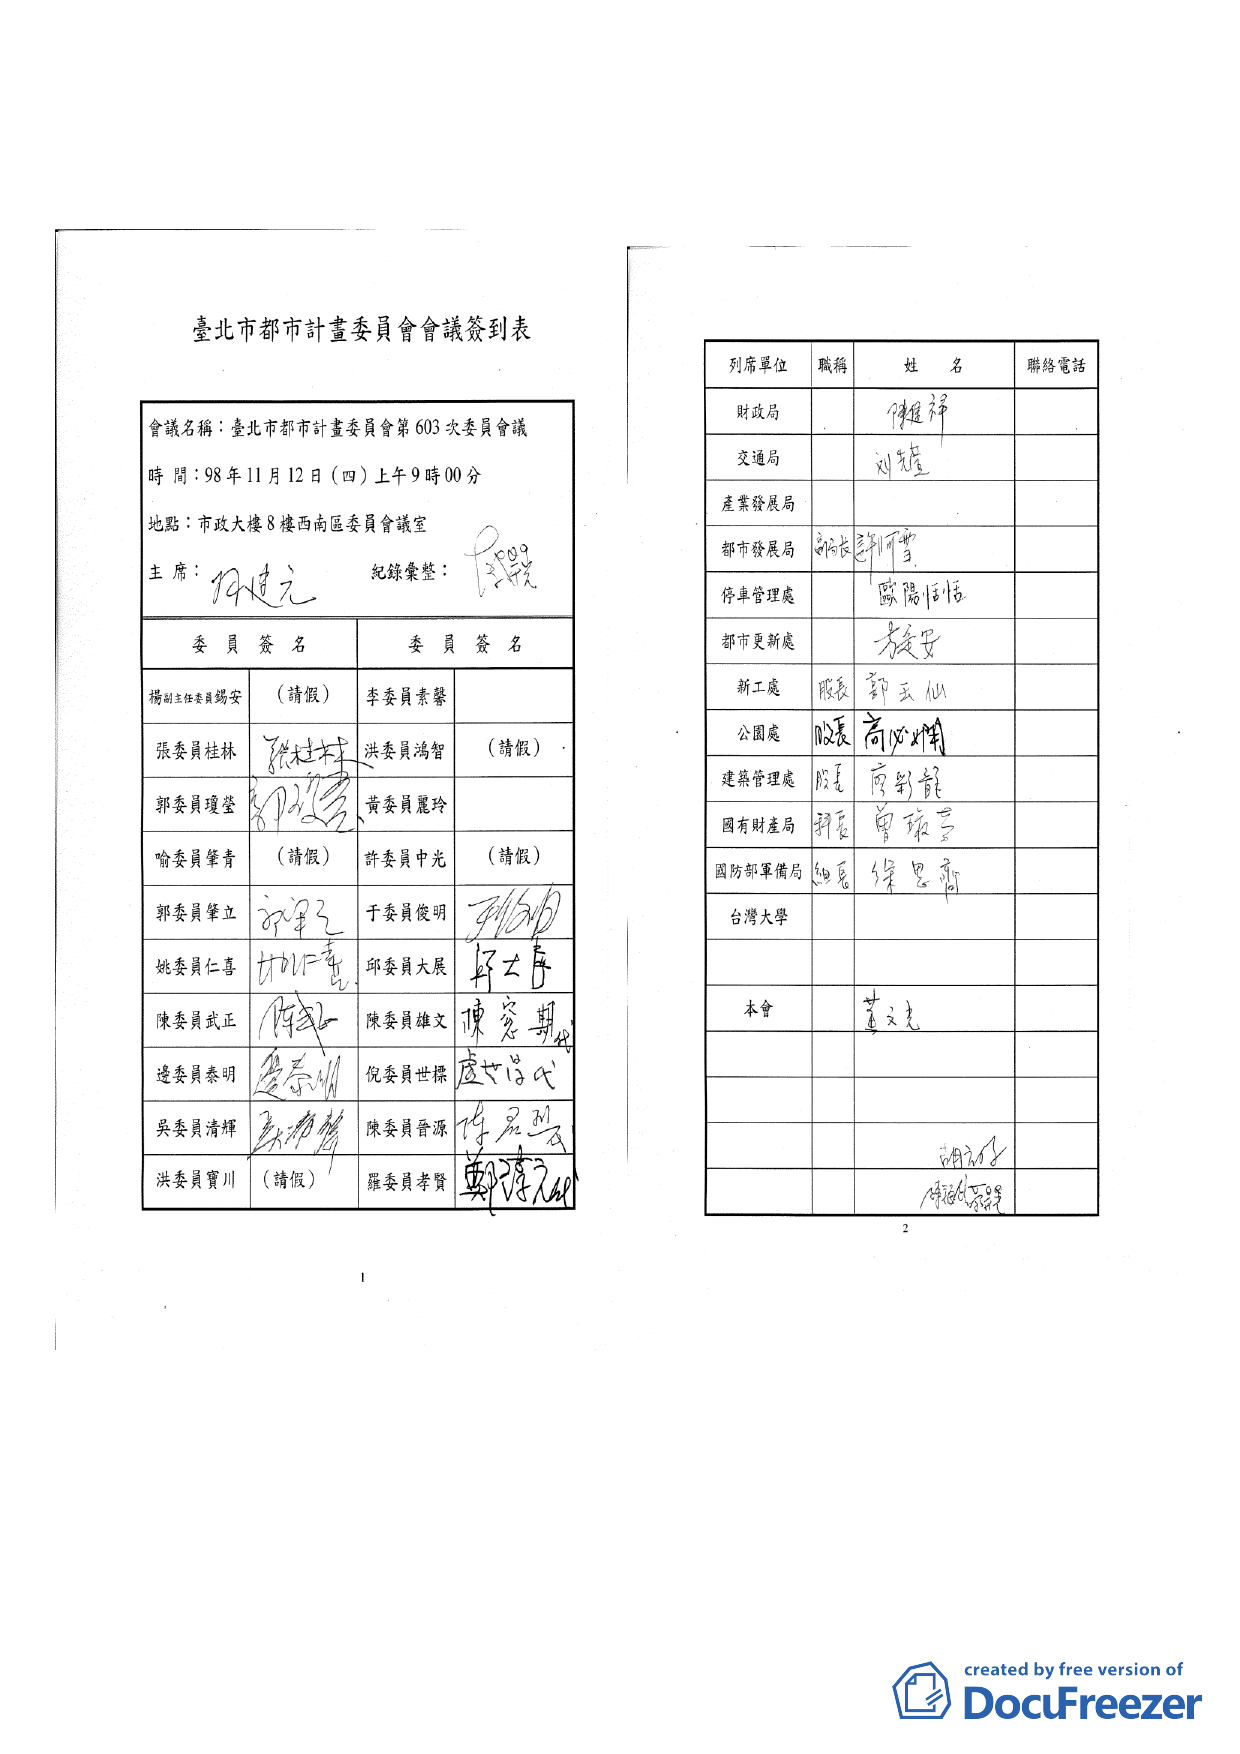 臺北市都市計畫委員會會議簽到表
會議名稱：臺北市都市計畫委員會第603次委員會議
時 間：98年11月12日（四）上午9時00分
地點：市政大樓8樓西南區委員會議室
主 席： 紀錄彙整：
委 員 簽 名 委 員 簽 名
楊副主任委員錫安 （請假） 李委員素馨
張委員桂林 張桂林 洪委員鴻智 （請假）
郭委員瓊瑩 黃委員麗玲
喻委員肇青 （請假） 許委員中光 （請假）
郭委員肇立 郭肇立 于委員俊明 于俊明
姚委員仁喜 姚仁喜 邱委員大展 邱大展
陳委員武正 陳武正 陳委員雄文 陳 期代
邊委員泰明 邊泰明 倪委員世標 盧世昌代
吳委員清輝 吳清輝 陳委員晉源 陳
洪委員寶川 （請假） 羅委員孝賢 鄭 代
1
列席單位 職稱 姓 名 聯絡電話
財政局 陳 祥
交通局
產業發展局
都市發展局 副局長 許阿雪
停車管理處 歐陽恬恬
都市更新處 方定安
新工處 股長 郭玉仙
公園處 股長 高
建築管理處 股長 龍
國有財產局 科長 曾
國防部軍備局 組長 徐思齊
台灣大學
本會 黃文光
2
created by free version of
DocuFreezer